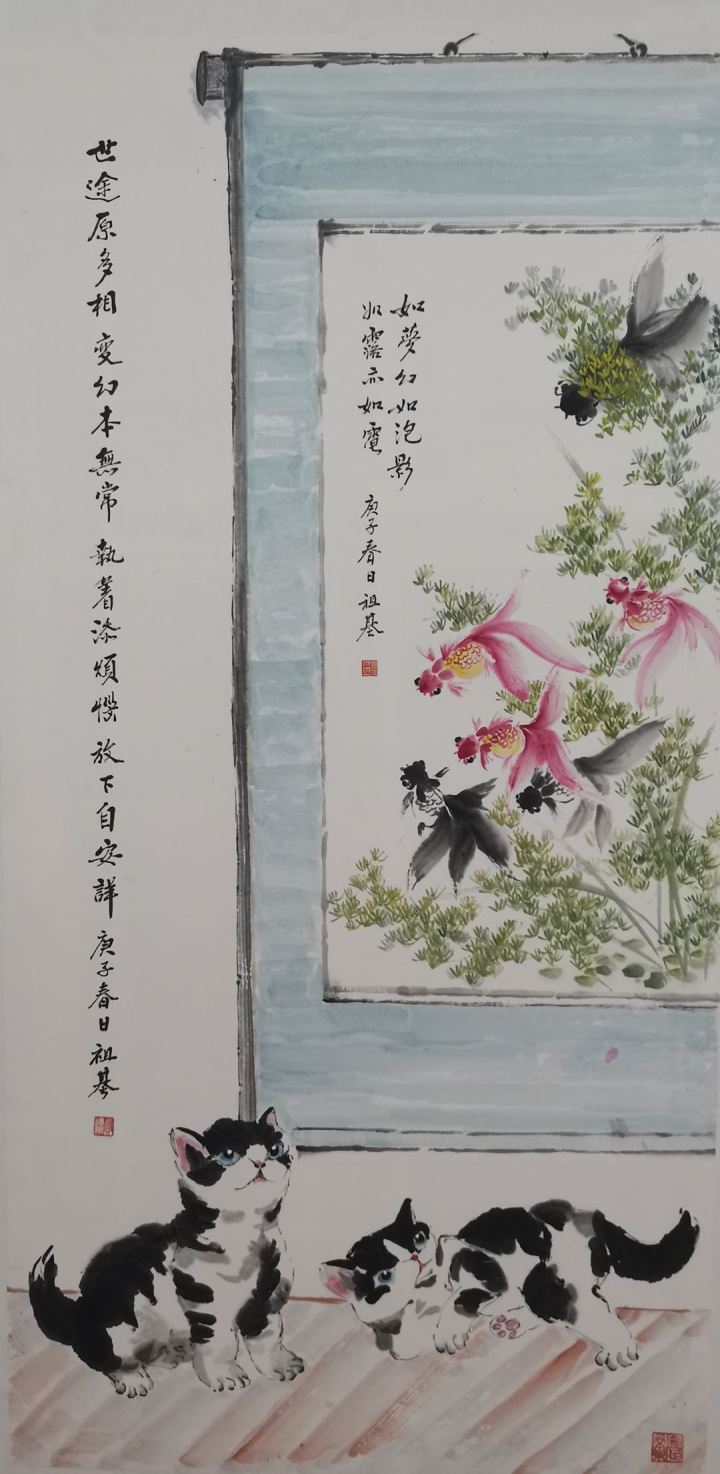 世途原多相變幻本無常執著添煩惱放下自安詳庚子春日祖基
如夢幻如泡影
如露亦如電
庚子春日祖基